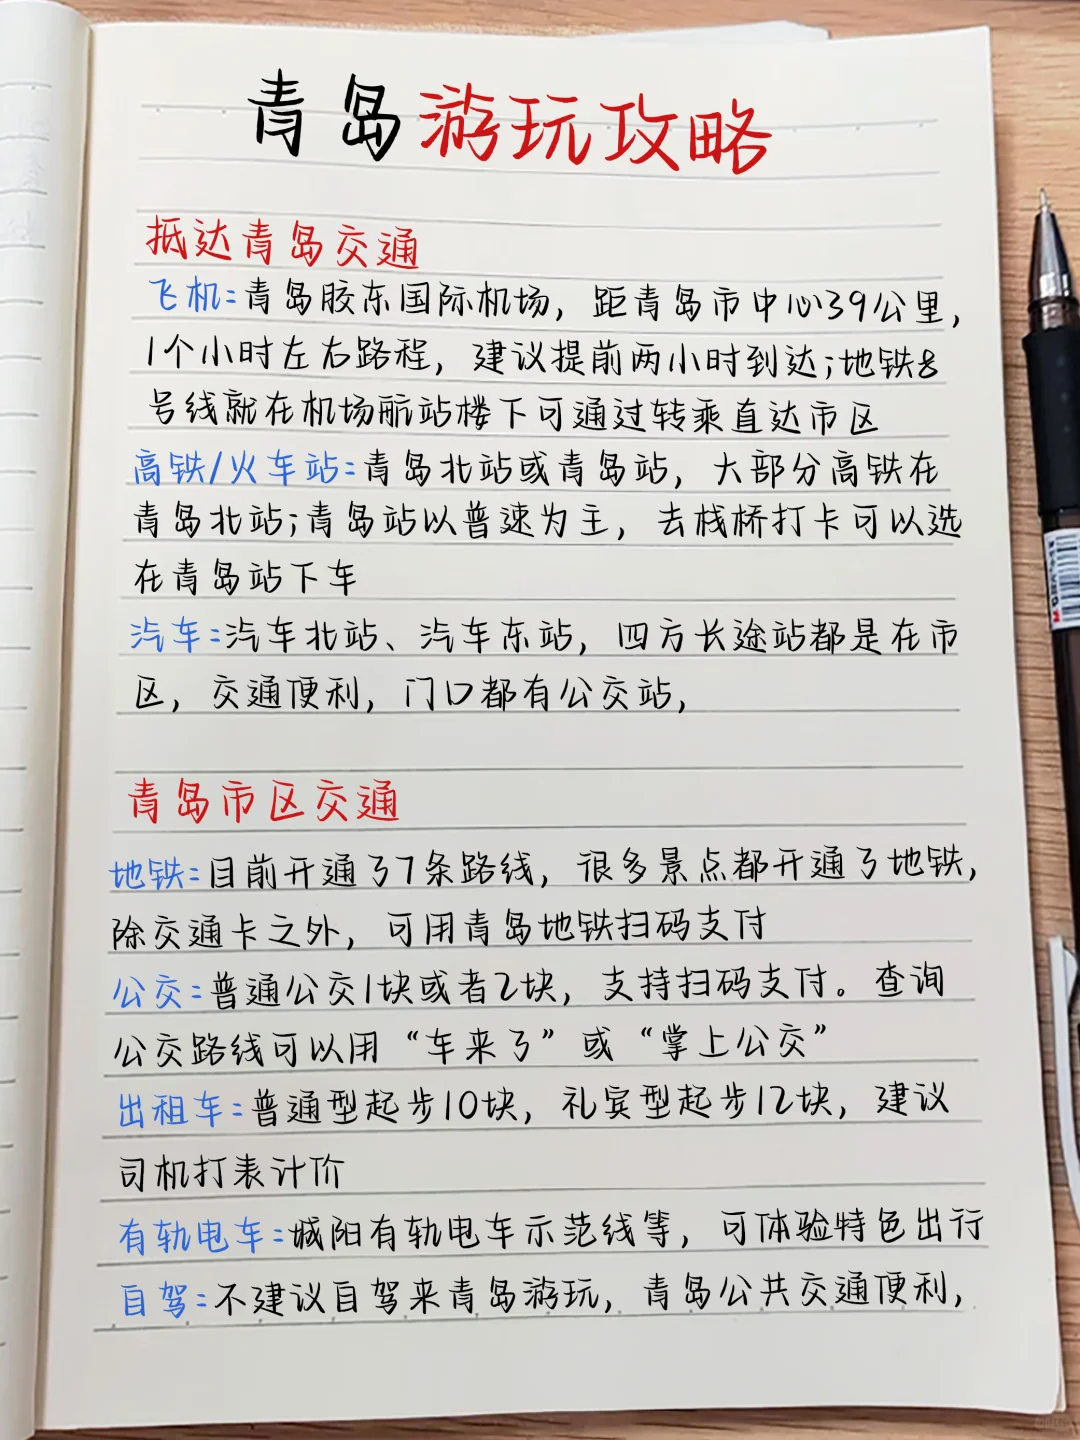 青岛游玩攻略
抵达青岛交通
飞机:青岛胶东国际机场，距青岛市中心39公里，
1个小时左右路程，建议提前两小时到达;地铁8
号线就在机场航站楼下可通过转乘直达市区
高铁/火车站:青岛北站或青岛站，大部分高铁在
青岛北站;青岛站以普速为主，去栈桥打卡可以选
在青岛站下车
汽车:汽车北站、汽车东站，四方长途站都是在市
区，交通便利，门口都有公交站，
青岛市区交通
地铁:目前开通了7条路线，很多景点都开通了地铁，
除交通卡之外，可用青岛地铁扫码支付
公交:普通公交1块或者2块，支持扫码支付。查询
公交路线可以用“车来了”或“掌上公交”
出租车:普通型起步10块，礼宾型起步12块，建议
司机打表计价
有轨电车:城阳有轨电车示范线等，可体验特色出行
自驾:不建议自驾来青岛游玩，青岛公共交通便利，